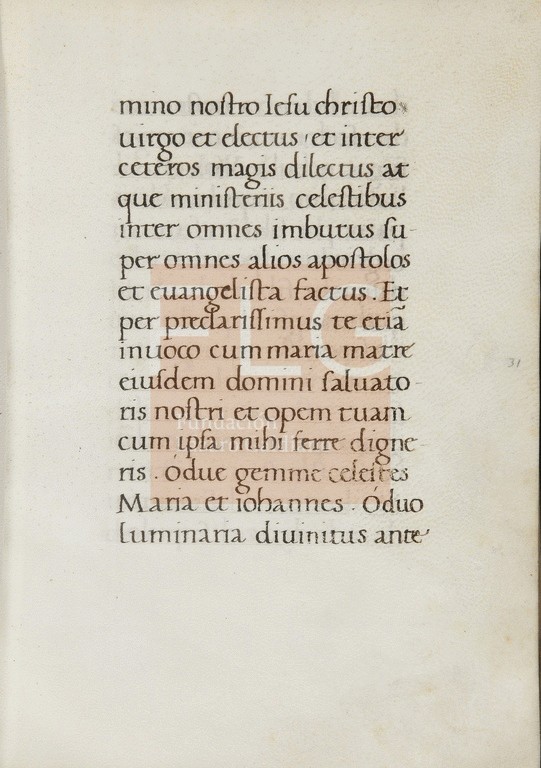 mino noſtro Ieſu chriſto
uirgo et electus et inter
ceteros magis dilectus at
que miniſteriis celeſtibus
inter omnes imbutus ſu-
per omnes alios apoſtolos
et euangeliſta factus. Et
per preclariſſimus te etiā
inuoco cum maria matre
eiuſdem domini ſaluato-
ris noſtri et opem tuam
cum ipſa mihi ferre digne-
ris. O due gemme celeſtes
Maria et iohannes. O duo
luminaria diuinitus ante
31
FLG
Fundación